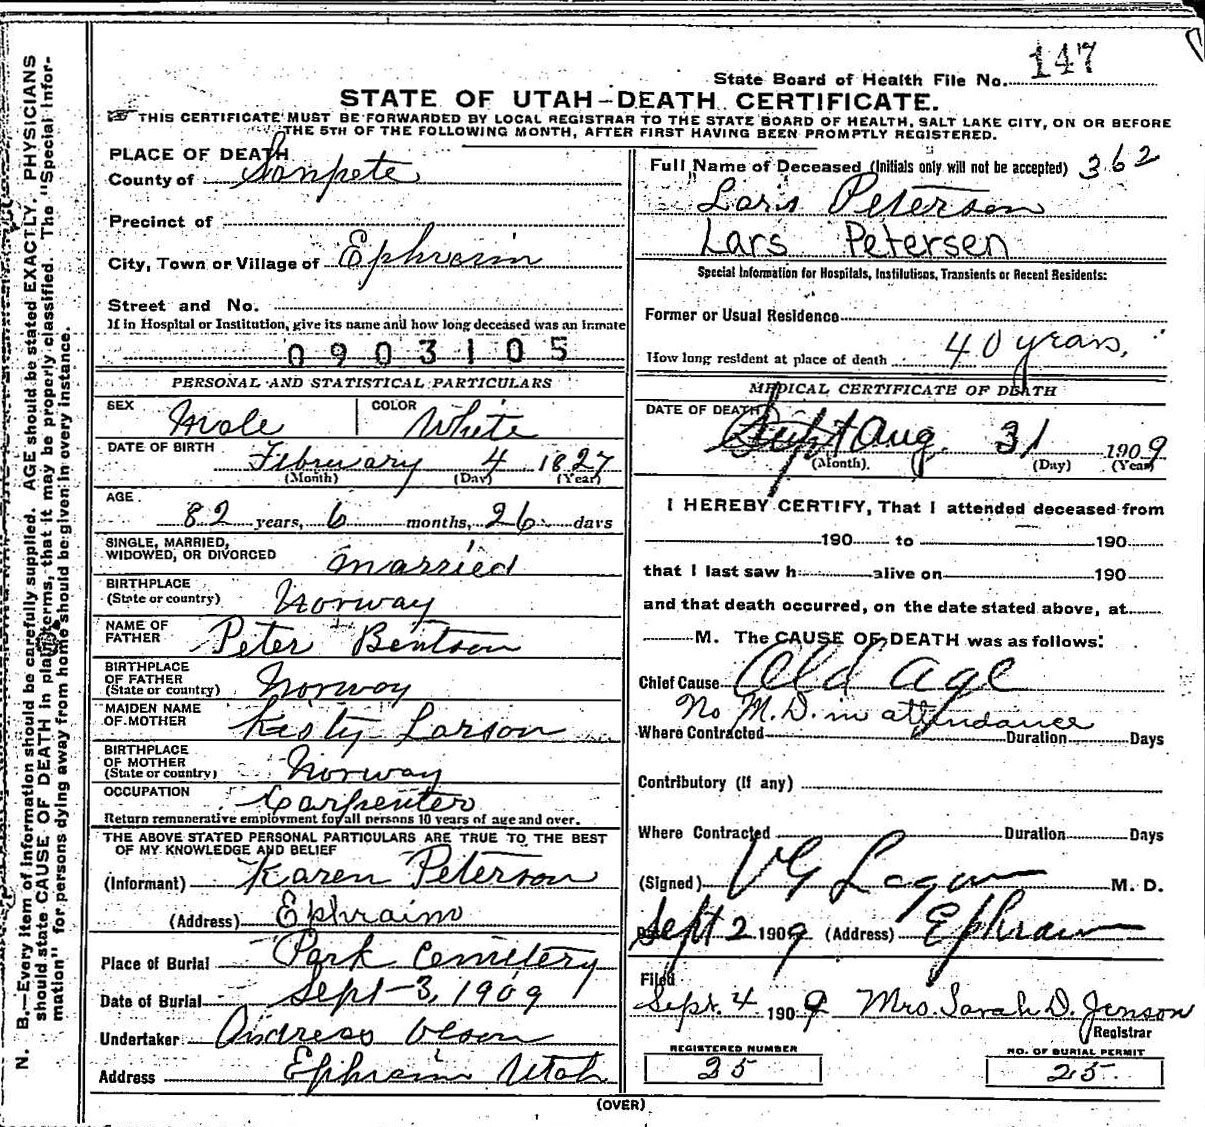 State Board of Health File No. 147
STATE OF UTAH—DEATH CERTIFICATE.
THIS CERTIFICATE MUST BE FORWARDED BY LOCAL REGISTRAR TO THE STATE BOARD OF HEALTH, SALT LAKE CITY, ON OR BEFORE
THE 5TH OF THE FOLLOWING MONTH, AFTER FIRST HAVING BEEN PROMPTLY REGISTERED.
N. B.—Every item of information should be carefully supplied. AGE should be stated EXACTLY. PHYSICIANS
should state CAUSE OF DEATH in plain terms, that it may be properly classified. The "Special Infor-
mation" for persons dying away from home should be given in every instance.
PLACE OF DEATH
County of Sanpete
Precinct of
City, Town or Village of Ephraim
Street and No.
If in Hospital or Institution, give its name and how long deceased was an inmate
0903105
PERSONAL AND STATISTICAL PARTICULARS
SEX Male COLOR White
DATE OF BIRTH February 4 1827
(Month) (Day) (Year)
AGE
82 years, 6 months, 26 days
SINGLE, MARRIED,
WIDOWED, OR DIVORCED married
BIRTHPLACE
(State or country) Norway
NAME OF
FATHER Peter Bentson
BIRTHPLACE
OF FATHER
(State or country) Norway
MAIDEN NAME
OF MOTHER Kisty Larson
BIRTHPLACE
OF MOTHER
(State or country) Norway
OCCUPATION Carpenter
Return remunerative employment for all persons 10 years of age and over.
THE ABOVE STATED PERSONAL PARTICULARS ARE TRUE TO THE BEST
OF MY KNOWLEDGE AND BELIEF
(Informant) Karen Peterson
(Address) Ephraim
Place of Burial Park Cemetery
Date of Burial Sept-3, 1909
Undertaker Andreas Olson
Address Ephraim Utah
Full Name of Deceased (Initials only will not be accepted) 362
Lars Peterson
Lars Petersen
Special Information for Hospitals, Institutions, Transients or Recent Residents:
Former or Usual Residence
How long resident at place of death 40 years,
MEDICAL CERTIFICATE OF DEATH
DATE OF DEATH
Sept Aug. 31 1909
(Month). (Day) (Year)
I HEREBY CERTIFY, That I attended deceased from
190 to 190
that I last saw h alive on 190
and that death occurred, on the date stated above, at
M. The CAUSE OF DEATH was as follows:
Chief Cause Old age
No M.D. in attendance
Where Contracted Duration Days
Contributory (If any)
Where Contracted Duration Days
(Signed) M. D.
Sept 2 1909 (Address) Ephraim
Filed
Sept. 4 1909 Mrs. Sarah D. Jenson
Registrar
REGISTERED NUMBER
25
NO. OF BURIAL PERMIT
25.
(OVER)